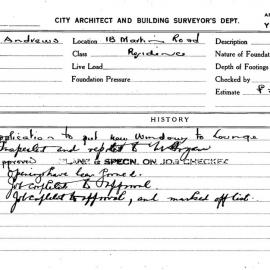 CITY ARCHITECT AND BUILDING SURVEYOR'S DEPT.
Andrews Location 1B Road Description
Class Residence Nature of Foundat
Live Load Depth of Footings
Foundation Pressure Checked by
Estimate
HISTORY
pplication to put new Windows to Lounge
Inspected and
PLANS & SPECN. ON JOB CHECKED
Opening have been formed.
Job completed to approval.
Job completed to approval, and marked off list.